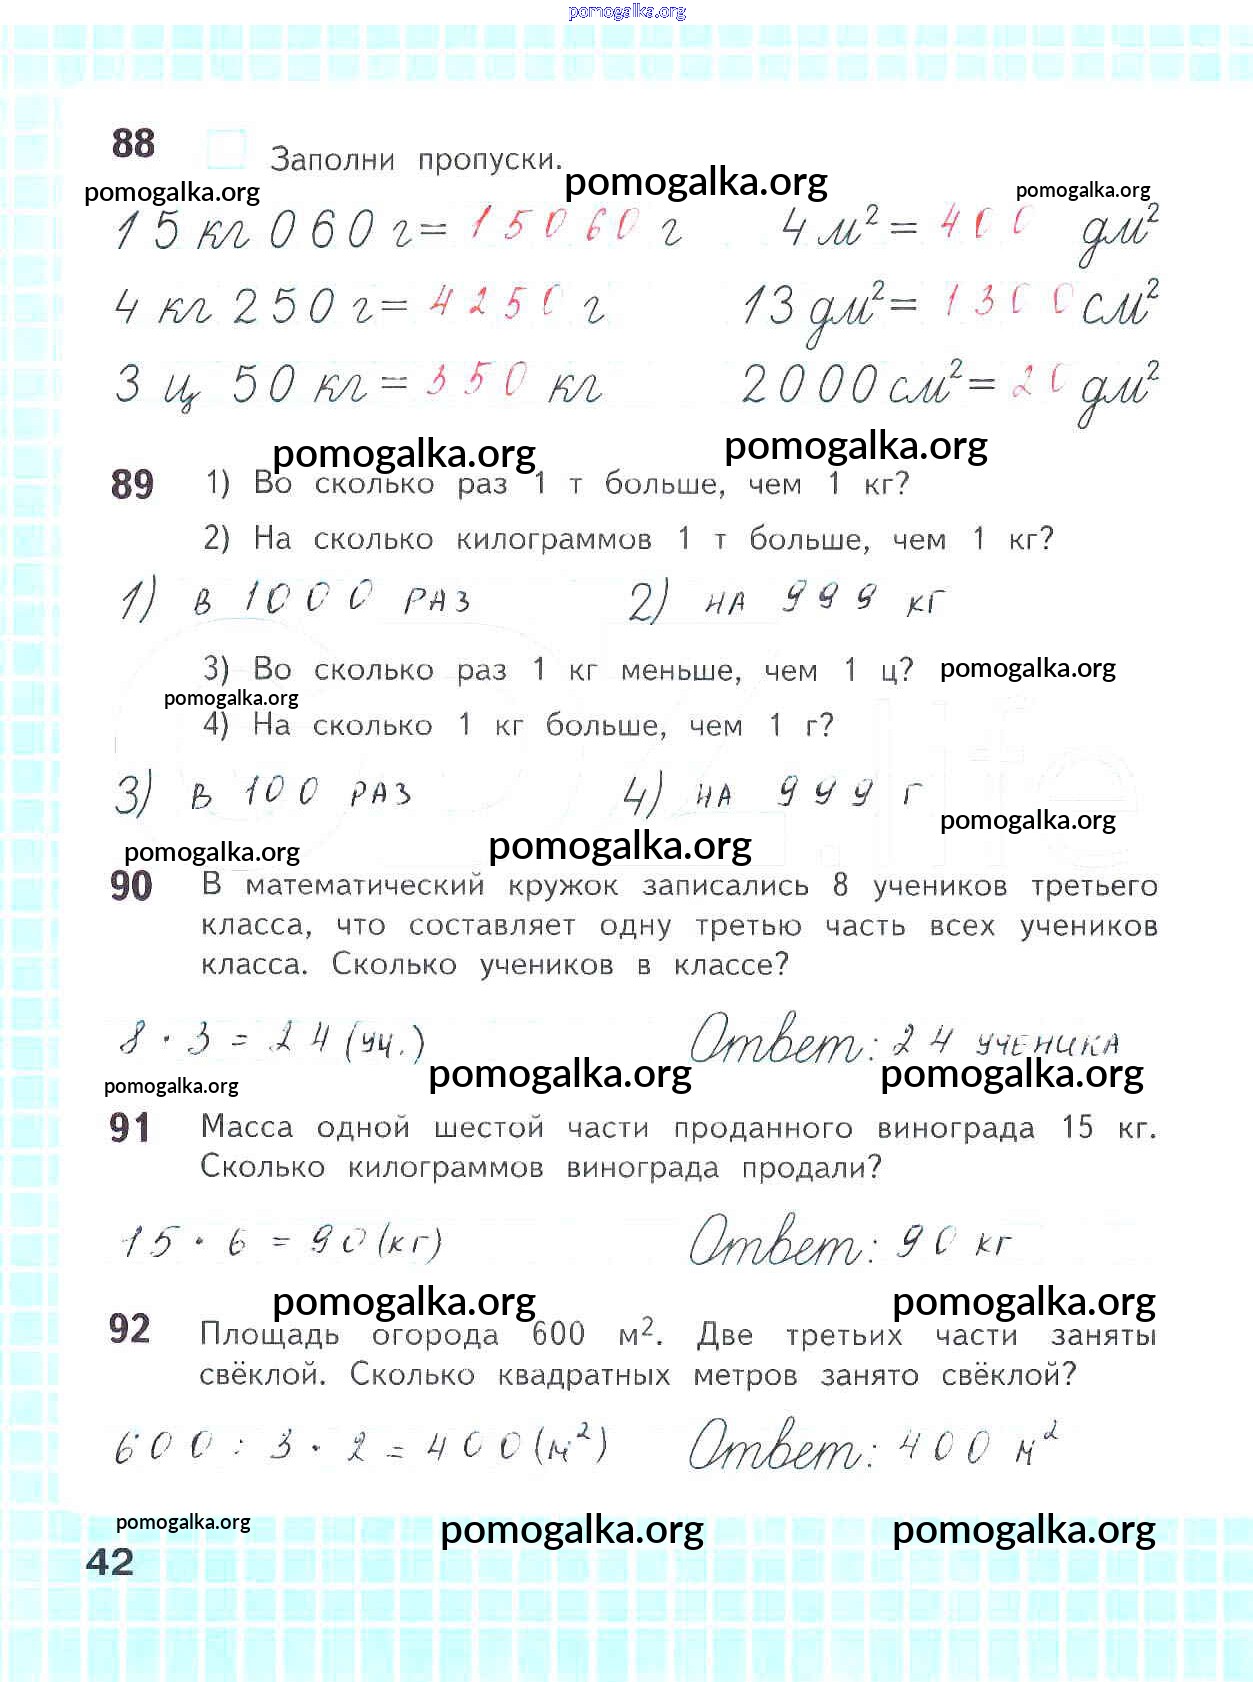 pomogalka.org
88 Заполни пропуски.
pomogalka.org pomogalka.org pomogalka.org
15 кг 060 г = 15060 г 4 м² = 400 дм²
4 кг 250 г = 4250 г 13 дм² = 1300 см²
3 ц 50 кг = 350 кг 2000 см² = 20 дм²
pomogalka.org pomogalka.org
89 1) Во сколько раз 1 т больше, чем 1 кг?
2) На сколько килограммов 1 т больше, чем 1 кг?
1) в 1000 раз 2) на 999 кг
3) Во сколько раз 1 кг меньше, чем 1 ц? pomogalka.org
pomogalka.org
4) На сколько 1 кг больше, чем 1 г?
3) в 100 раз 4) на 999 г
pomogalka.org
pomogalka.org pomogalka.org
90 В математический кружок записались 8 учеников третьего
класса, что составляет одну третью часть всех учеников
класса. Сколько учеников в классе?
8 · 3 = 24 (уч.) Ответ: 24 ученика
pomogalka.org pomogalka.org pomogalka.org
91 Масса одной шестой части проданного винограда 15 кг.
Сколько килограммов винограда продали?
15 · 6 = 90 (кг) Ответ: 90 кг
pomogalka.org pomogalka.org
92 Площадь огорода 600 м². Две третьих части заняты
свёклой. Сколько квадратных метров занято свёклой?
600 : 3 · 2 = 400 (м²) Ответ: 400 м²
pomogalka.org pomogalka.org pomogalka.org
42